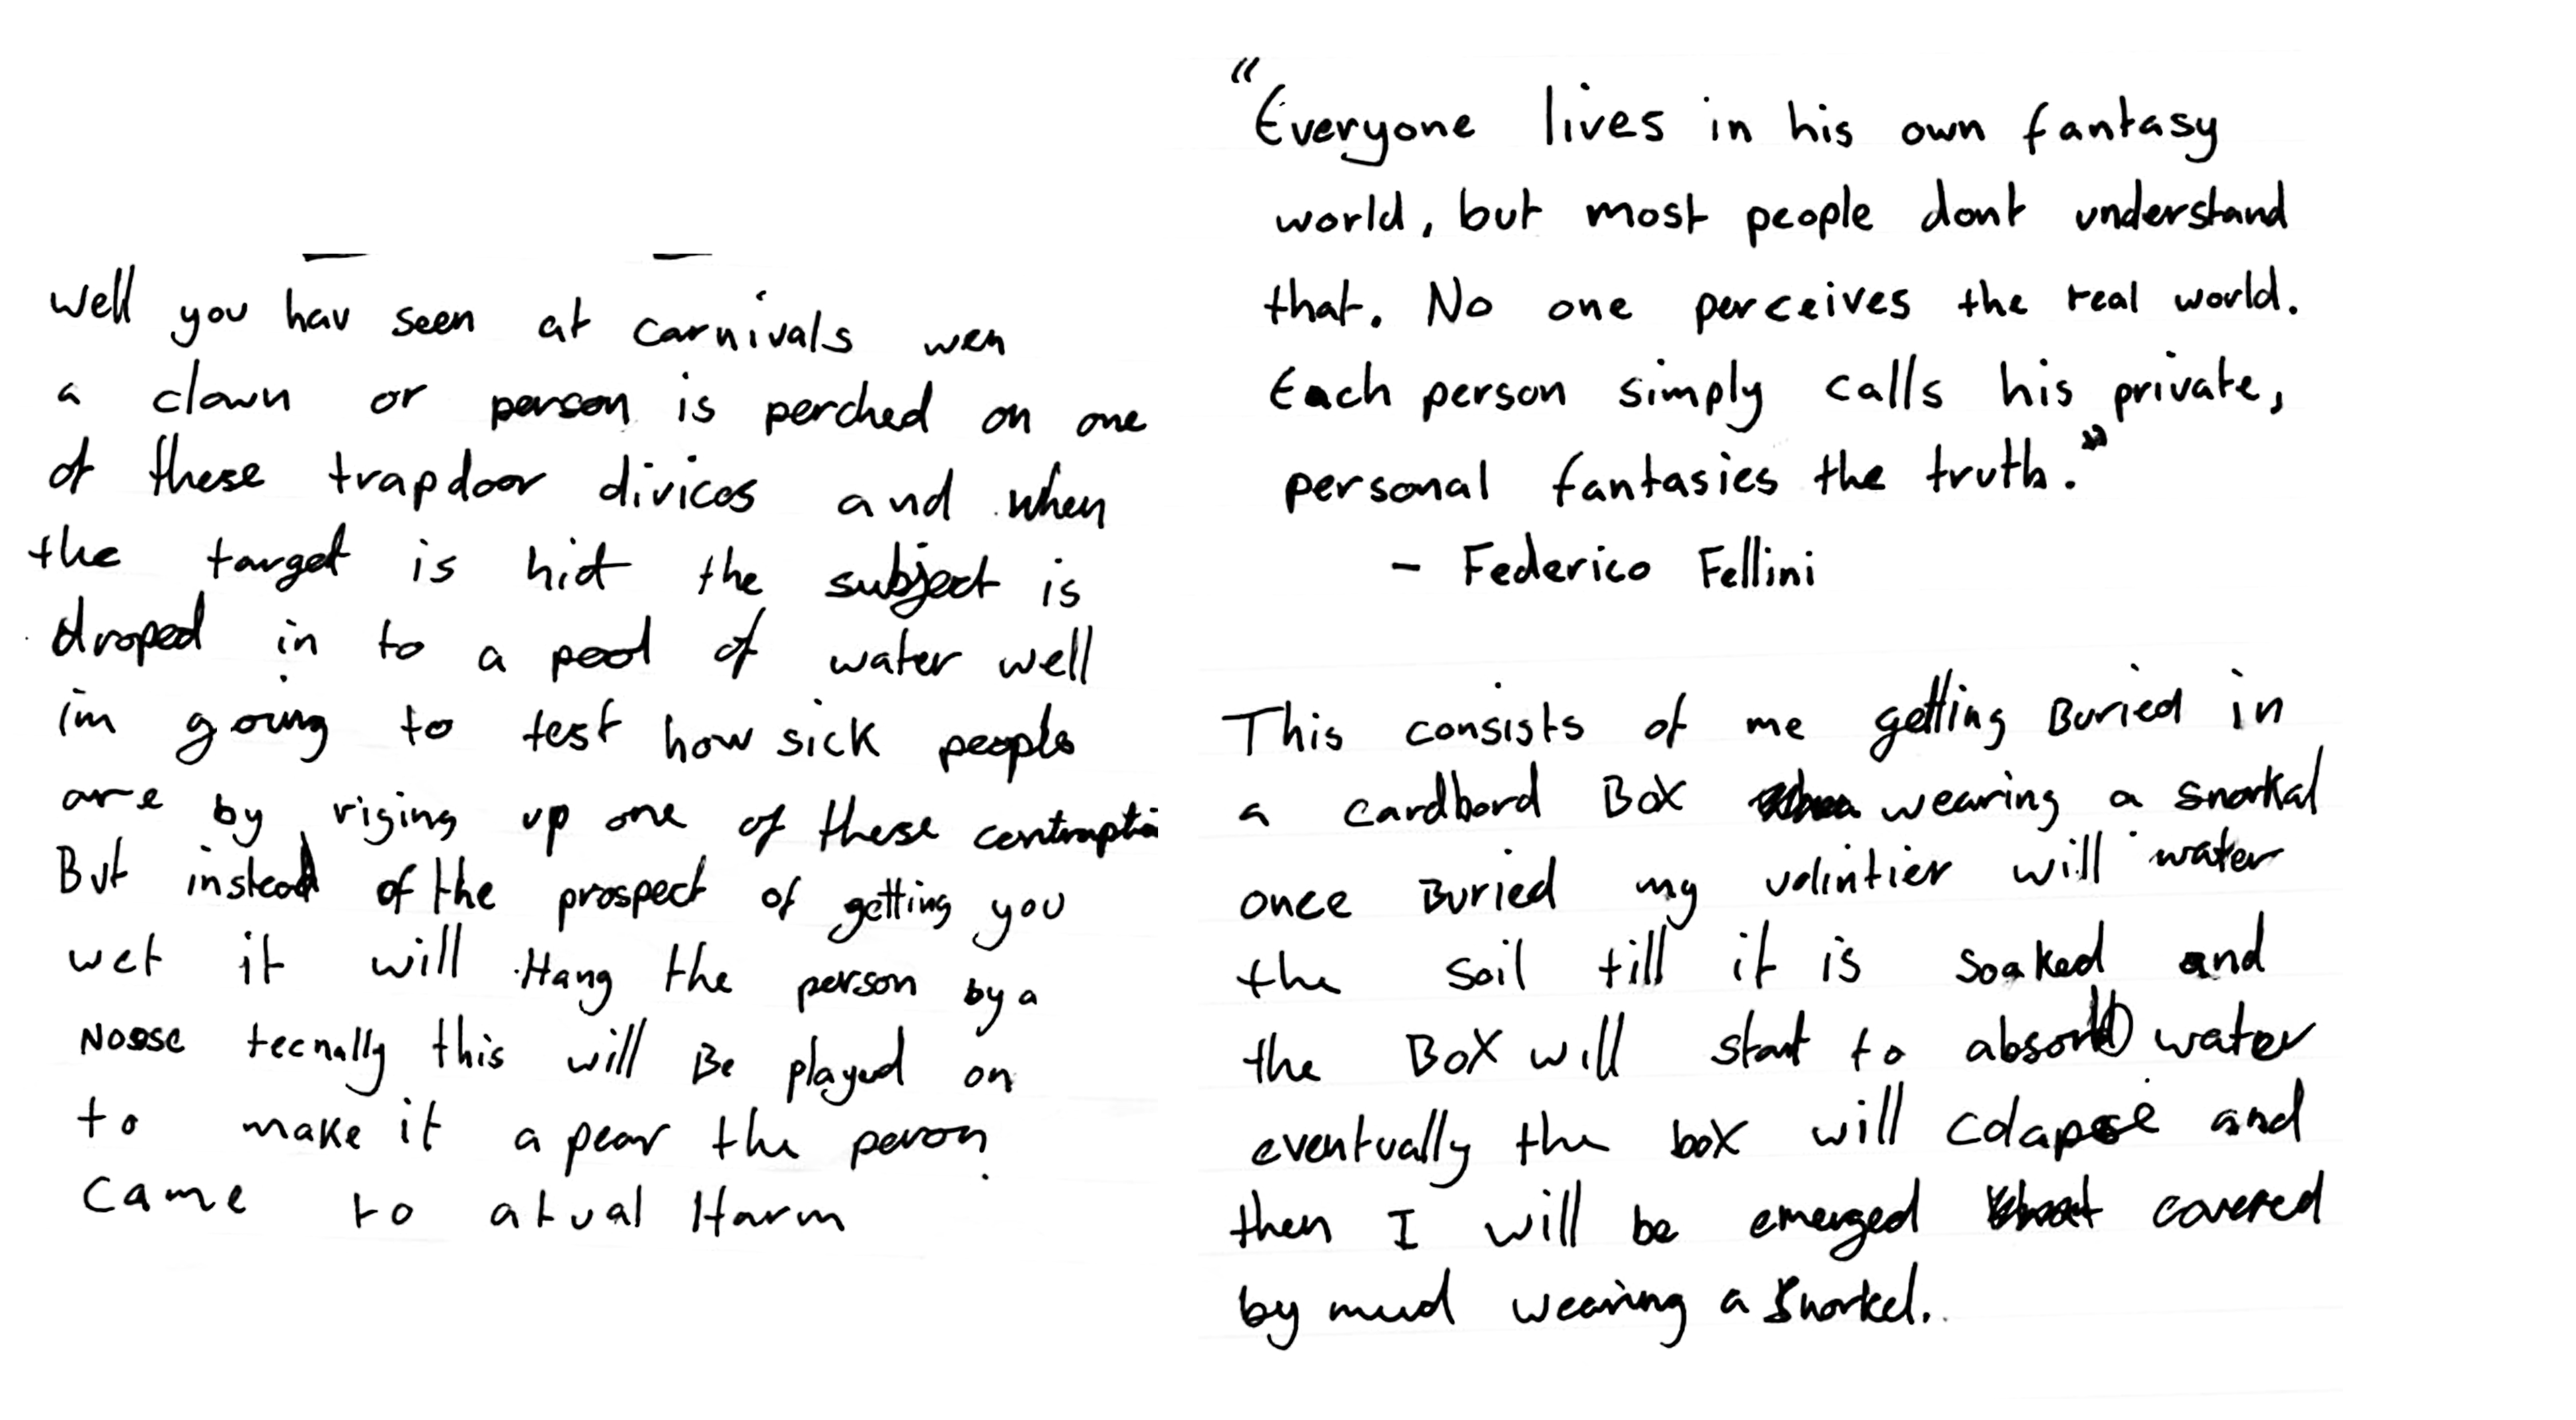 well you hav seen at carnivals wen
a clown or person is perched on one
of these trapdoor divices and when
the target is hit the subject is
droped in to a pool of water well
im going to test how sick people
are by riging up one of these contraptio
But instead of the prospect of getting you
wet it will Hang the person by a
Noose tecnally this will Be played on
to make it a pear the peron
came to atual Harm
"Everyone lives in his own fantasy
world, but most people dont understand
that. No one perceives the real world.
Each person simply calls his private,
personal fantasies the truth."
- Federico Fellini
This consists of me getting Buried in
a cardbord Box wearing a snorkal
once Buried my volintier will water
the soil till it is soaked and
the Box will start to absorb water
eventually the box will colapse and
then I will be emerged covered
by mud wearing a snorkel.